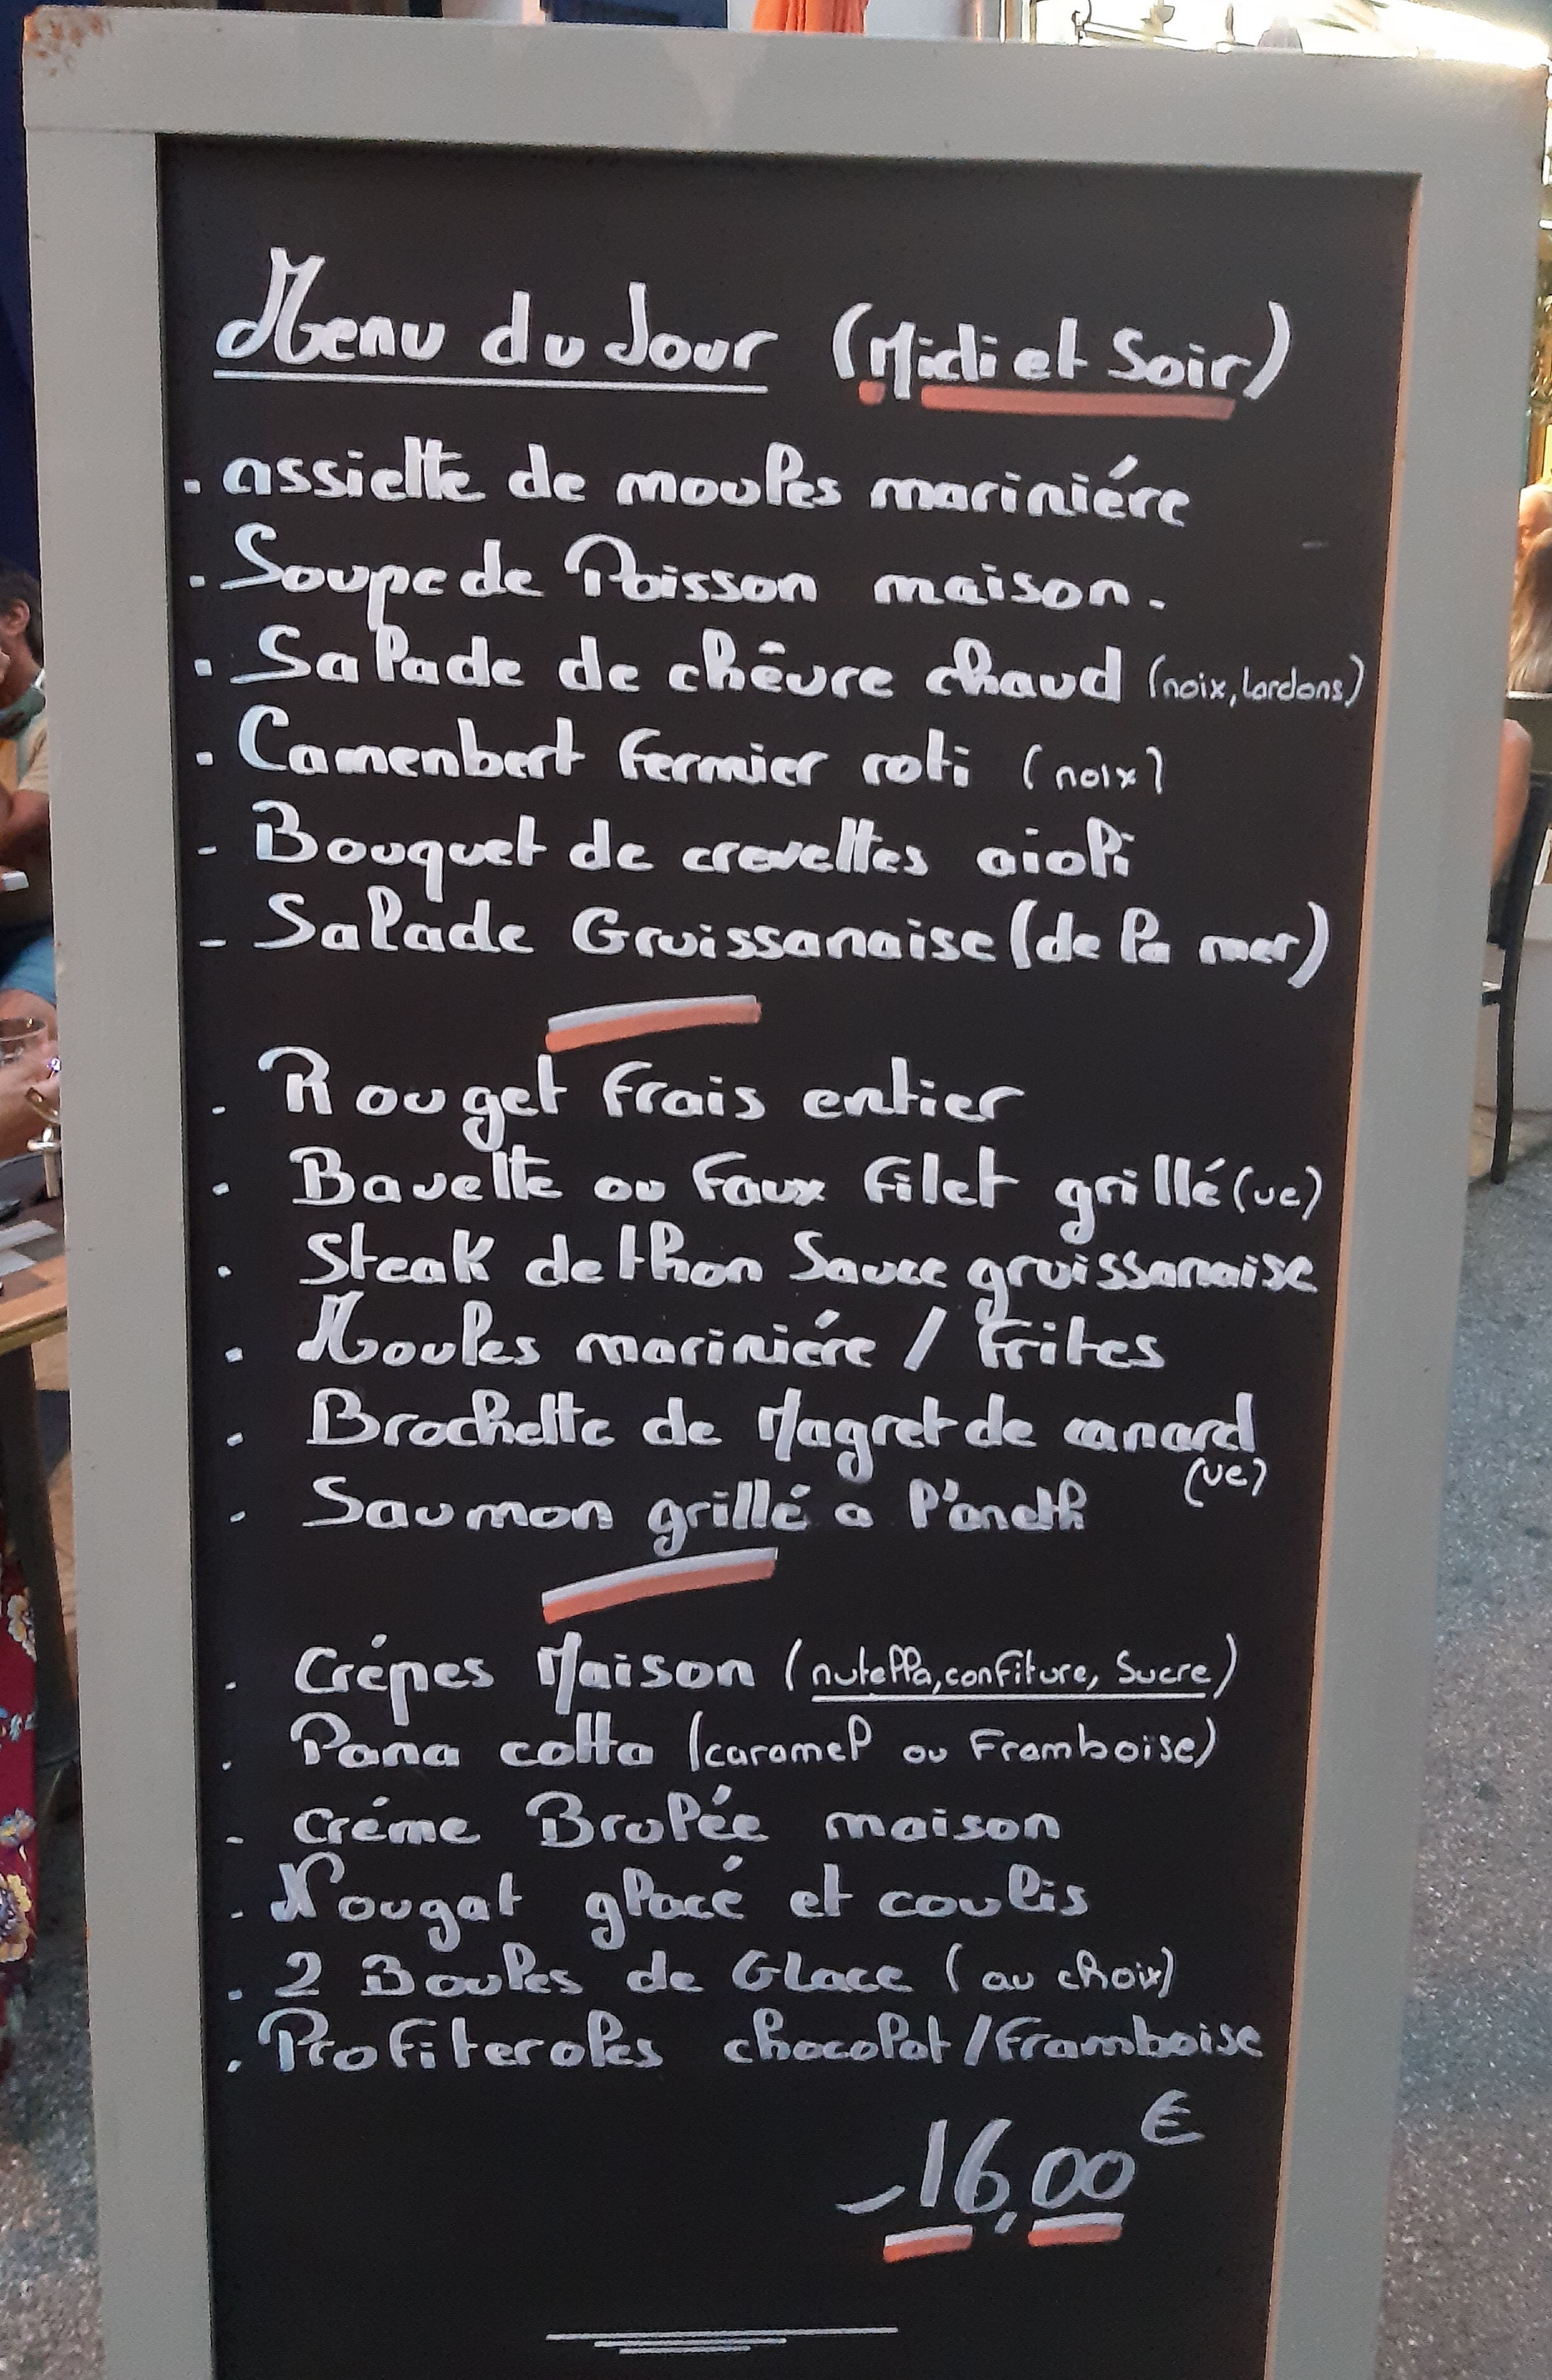 Menu du Jour (Midi et Soir)
. assiette de moules mariniére
. Soupe de Poisson maison.
. Salade de chêvre chaud (noix, lardons)
. Camenbert fermier roti (noix)
- Bouquet de crevettes aioli
- Salade Gruissanaise (de la mer)
- Rouget frais entier
- Bavette ou Faux Filet grillé (ue)
. Steak de thon Sauce gruissanaise
. Moules mariniére / Frites
. Brochette de Magret de canard
(ue)
- Saumon grillé a l'aneth
. Crépes Maison (nutella, confiture, Sucre)
. Pana cotta (caramel ou Framboise)
- Créme Brulée maison
- Nougat glacé et coulis
. 2 Boules de Glace (au choix)
. Profiteroles chocolat/framboise
- 16,00 €